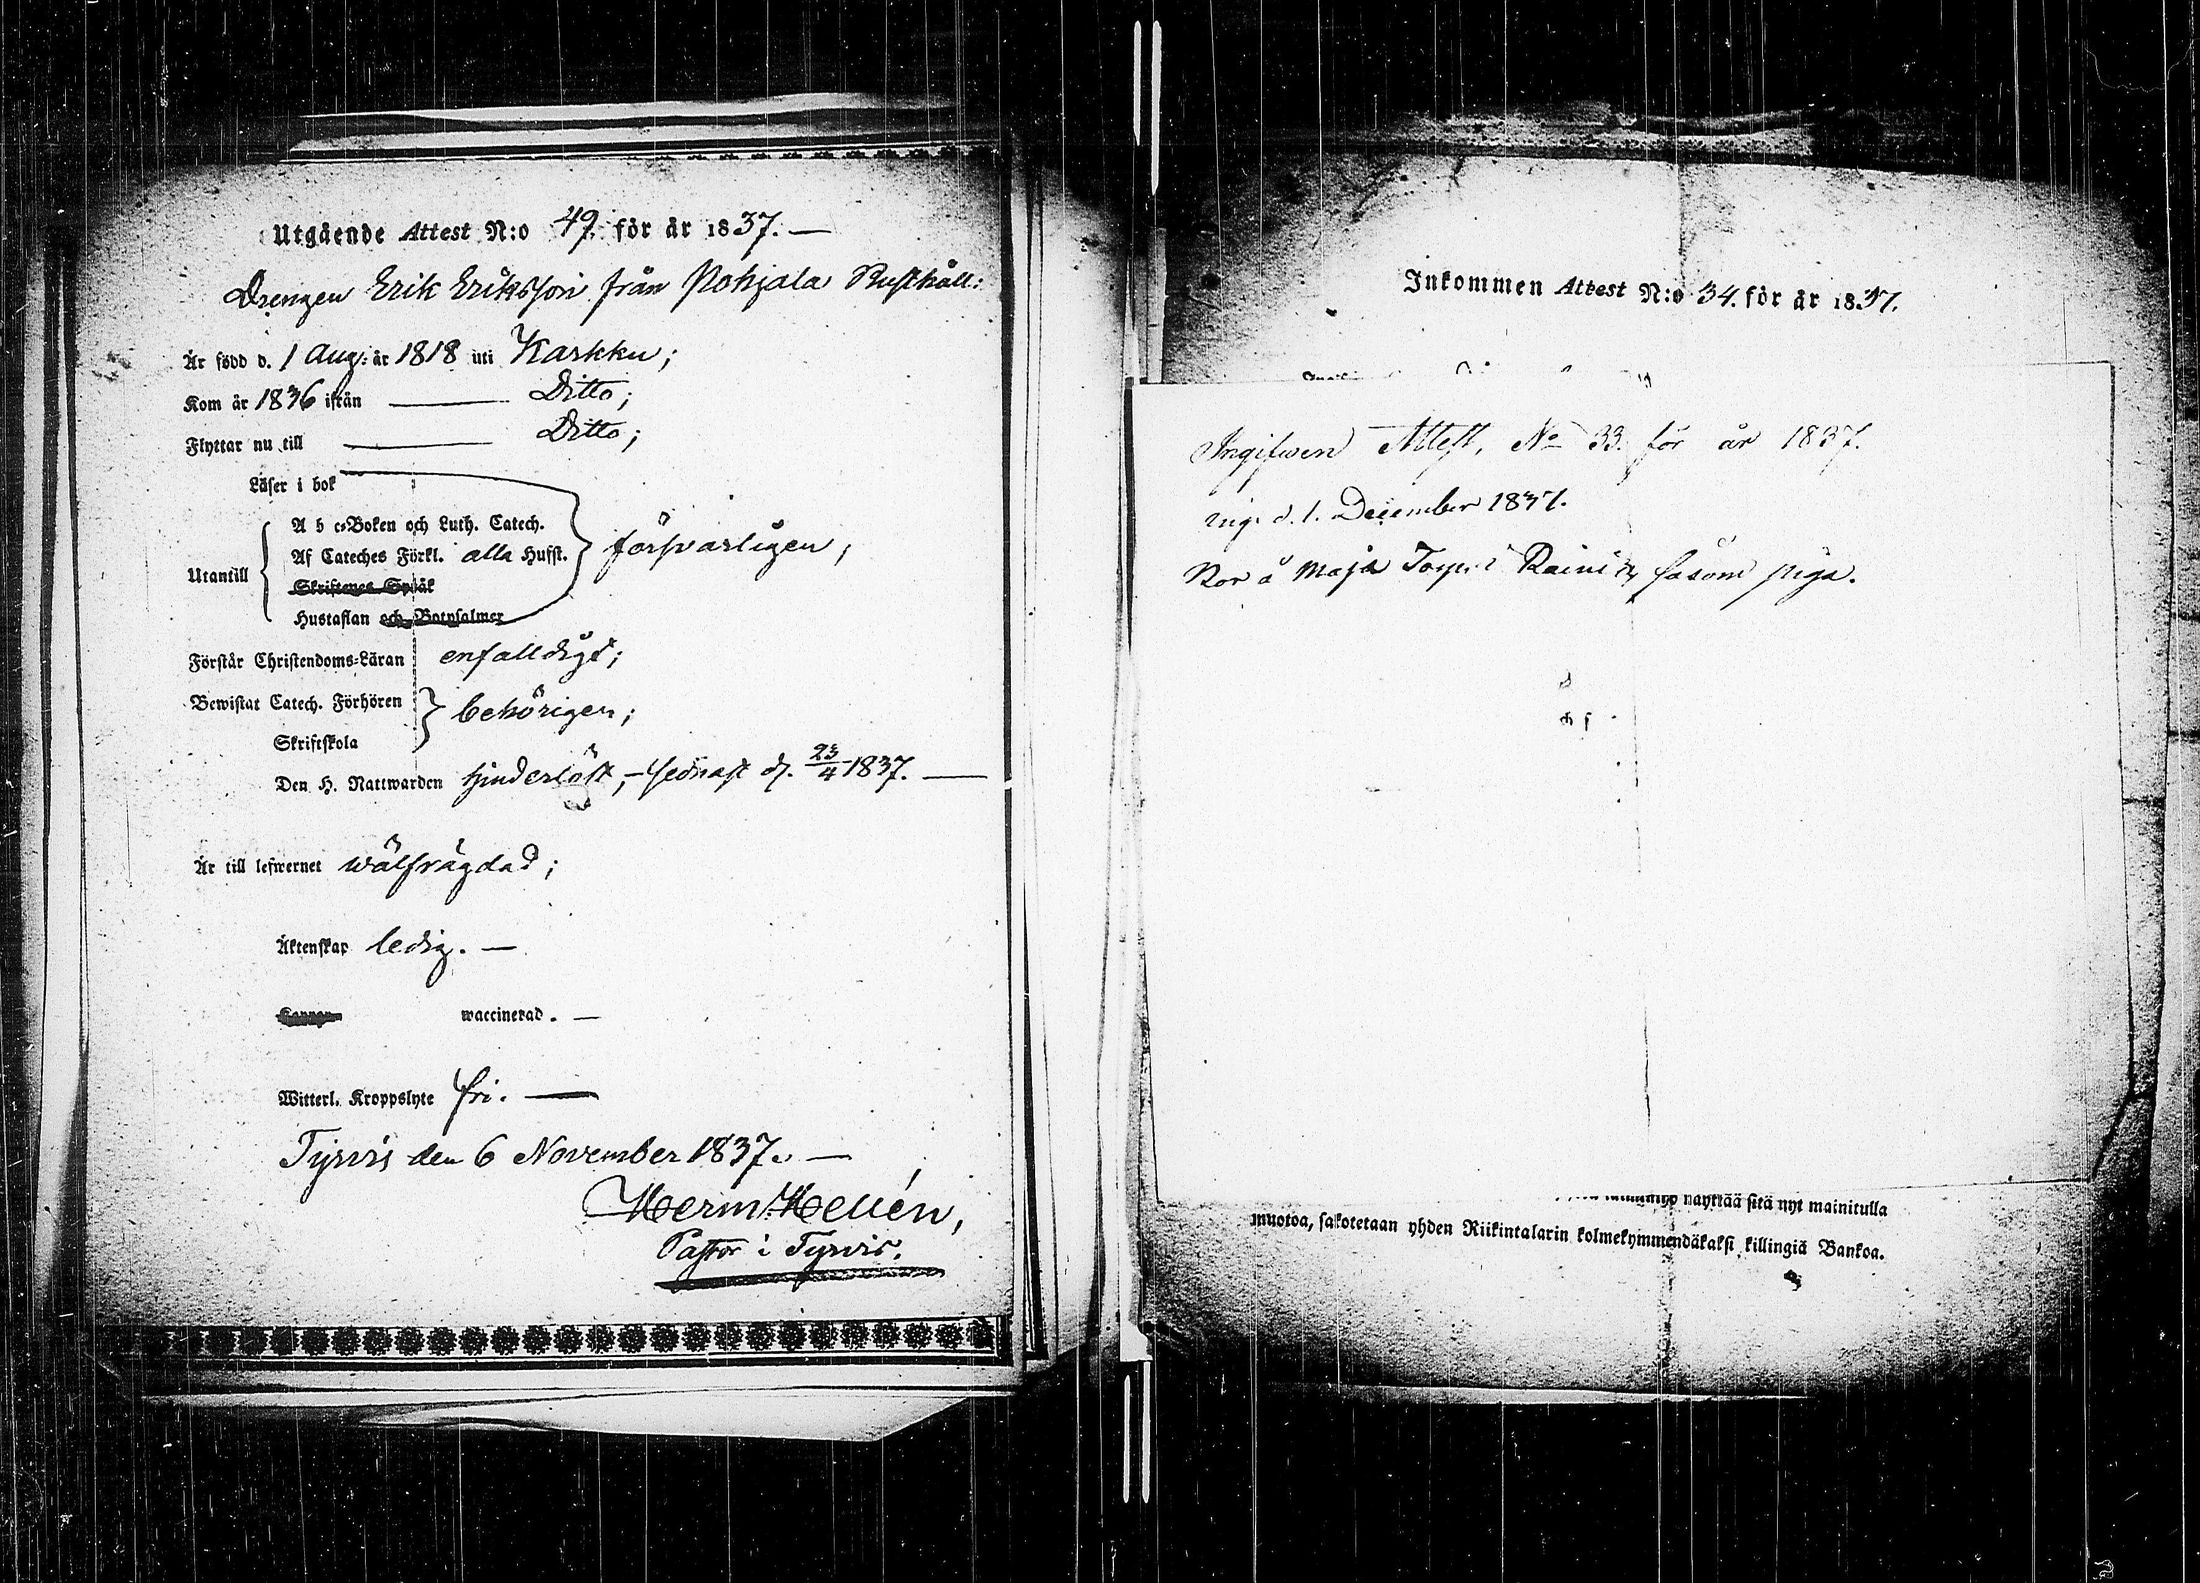 Utgående Attest N:o 49. för år 1837. —
Drengen Erik Eriksson från Pohjala Rusthåll:
Är född d. 1 Aug: år 1818 uti Karkku;
Kom år 1836 ifrån — Ditto;
Flyttar nu till — Ditto;
Läser i bok
Utantill
A b c-Boken och Luth. Catech.
Af Cateches Förkl. alla Hufst. försvarligen;
Skriftenes Språk
Hustaflan och Botpsalmer
Förstår Christendoms-Läran enfalldigt;
Bewistat Catech. Förhören behörigen;
Skriftskola
Den H. Nattwarden hinderlöst, – sednast d. 23/4 1837. —
Är till lefwernet wälfrägdad;
Äktenskap ledig. —
waccinerad. —
Witterl. Kroppslyte fri. —
Tyrvis den 6 November 1837. —
Herm. Hellén,
Pastor i Tyrvis.
Inkommen Attest N:o 34. för år 1837.
Ingifwen Attest, No 33. för år 1837.
ing. d. 1. December 1837.
Bor å Maja Torp i såsom piga.
näyttää sitä nyt mainitulla
muotoa, sakotetaan yhden Riikintalarin kolmekymmendäkaksi killingiä Bankoa.